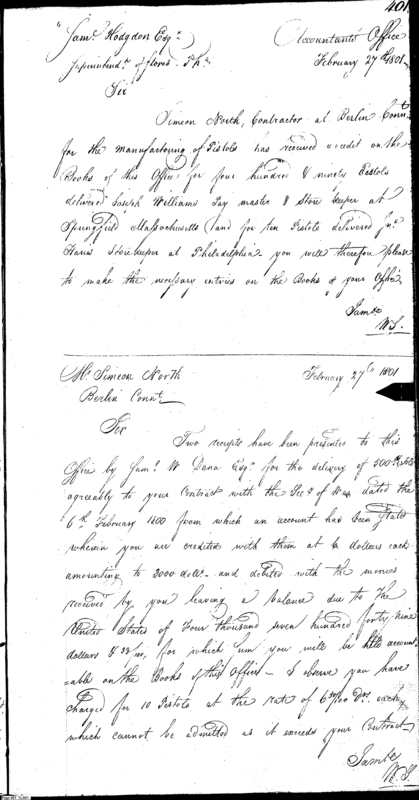 401
"Saml. Hodgdon Esqr. Accountants Office
Superintendt. of Stores Pha. February 27th 1801
Sir
Simeon North, Contractor at Berlin Connt.
for the manufacturing of Pistols has received a credit on the
Books of this Office for four hundred & ninety Pistols
delivered Joseph Williams Pay master & Store keeper at
Springfield Massachusetts and for ten Pistols delivered Jno.
Harris Storekeeper at Philadelphia you will therefore please
to make the necessary entries on the Books of your Office
I am &c
W.S.
Mr. Simeon North February 27th 1801
Berlin Connt.
Sir
Two receipts have been presented to this
Office by Saml. W Dana Esqr. for the delivery of 500 Pistols
agreeably to your Contract with the Secy of War dated the
6th February 1800 from which an account has been Stated
wherein you are credited with them at 6 dollars each
amounting to 3000 dolls. and debited with the monies
received by you leaving a balance due to the
United States of Four thousand seven hundred forty nine
dollars & /100, for which sum you will be held account-
=able on the Books of this Office - I observe you have
Charged for 10 Pistols at the rate of Drs. each
which cannot be admitted as it exceeds your Contract
I am &c
W.S.